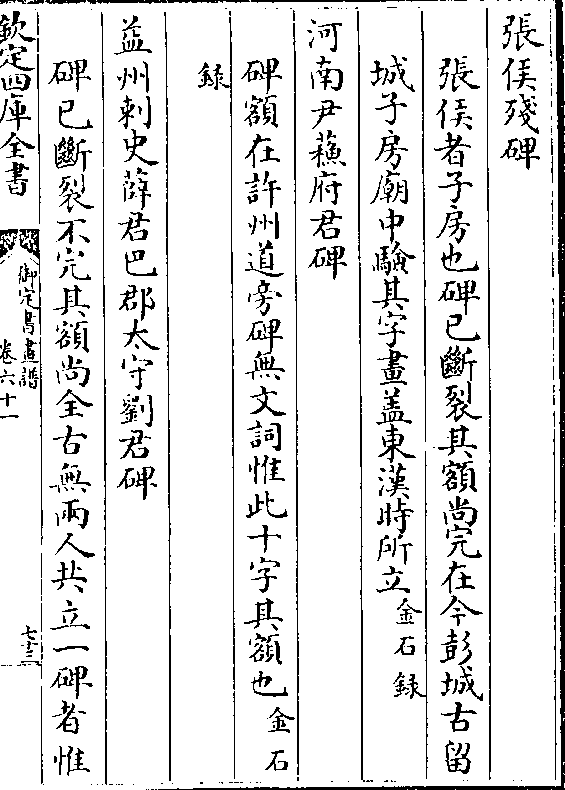 張侯殘碑
張侯者子房也碑已斷裂其額尚完在今彭城古留
城子房廟中驗其字畫盖東漢時所立金石錄
河南尹蘓府君碑
碑額在許州道旁碑無文詞惟此十字其額也金石
錄
益州刺史薛君巴郡太守劉君碑
碑已斷裂不完其額尚全古無兩人共立一碑者惟
欽定四庫全書
御定書畫譜
卷六十一